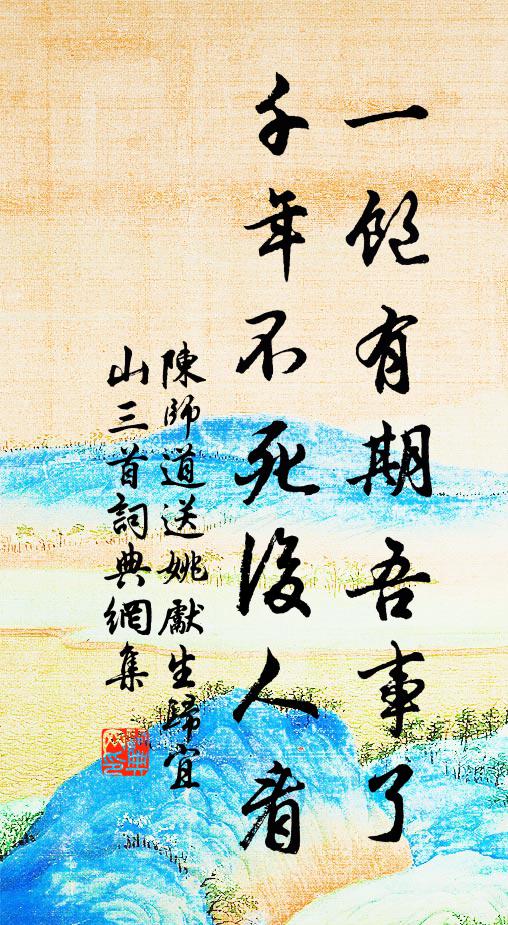 一飽有期吾事了
千年不死後人看
陳師道送姚獻生歸宜
山三首詞典網集